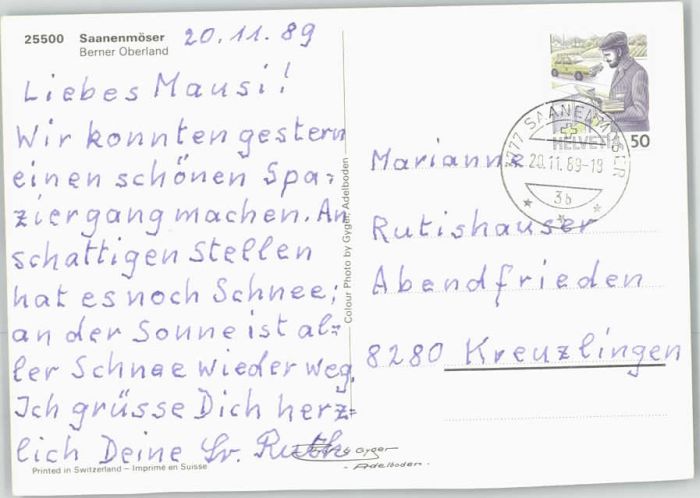 25500 Saanenmöser
Berner Oberland
20.11.89
Liebes Mausi!
Wir konnten gestern
einen schönen Spa-
ziergang machen. An
schattigen Stellen
hat es noch Schnee;
an der Sonne ist al-
ler Schnee wieder weg.
Ich grüsse Dich herz-
lich Deine Sr. Ruth
Printed in Switzerland – Imprimé en Suisse
Colour Photo by Gyger, Adelboden
Gyger
- Adelboden -
HELVETIA 50
3777 SAANENMÖSER
20.11.89-19
3b
Marianne
Rutishauser
Abendfrieden
8280 Kreuzlingen